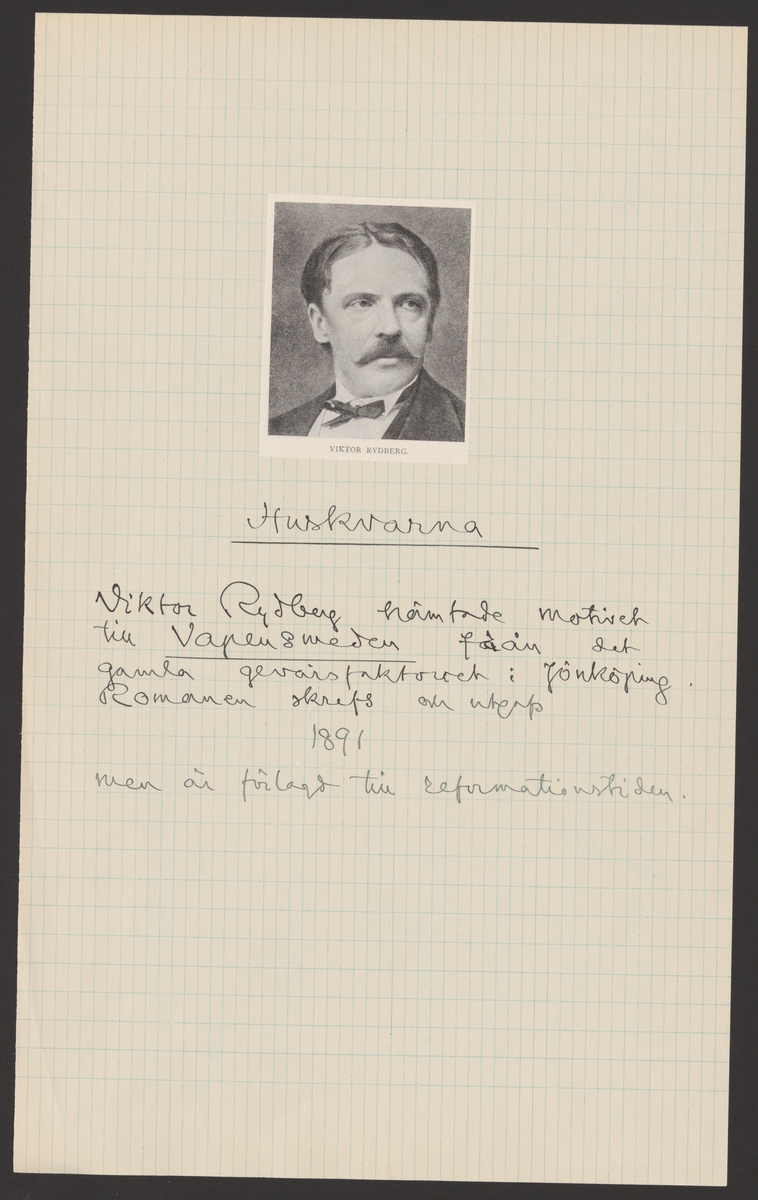 VIKTOR RYDBERG.
Huskvarna
Viktor Rydberg hämtade motivet
till Vapensmeden från det
gamla gevärsfaktoriet i Jönköping.
Romanen skrefs och utgafs
1891
men är förlagd till reformationstiden.